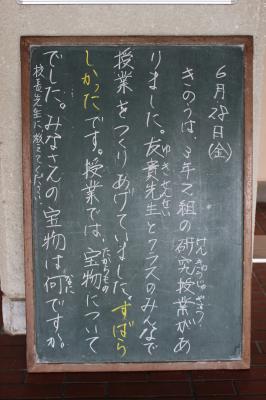 6月28日(金)
きのうは、3年2組の研究授業があ
りました。友貴先生とクラスのみんなで
授業をつくりあげていました。すばら
しかったです。授業では、宝物について
でした。みなさんの宝物は何ですか。
校長先生に教えてください。
けんきゅうじゅぎょう
ゆきせんせい
たからもの
なに